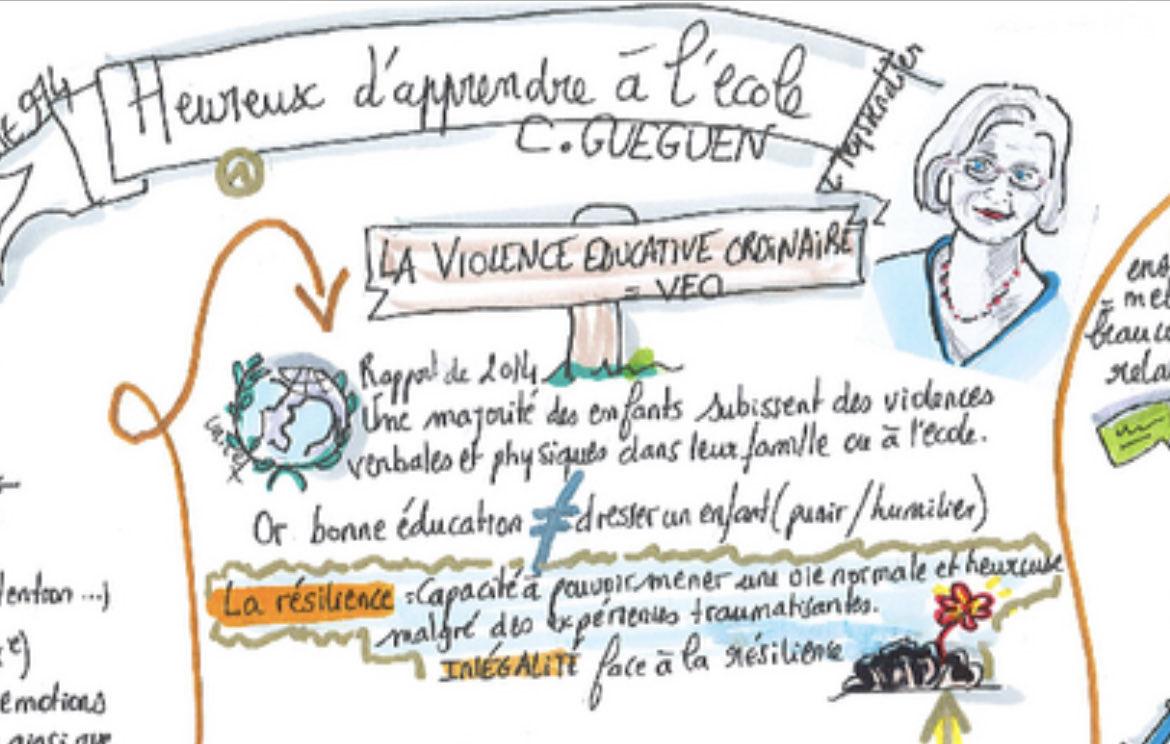 Heureux d'apprendre à l'école
C. GUEGUEN
LA VIOLENCE EDUCATIVE ORDINAIRE
= VEO
Rapport de 2014
Une majorité des enfants subissent des violences
verbales et physiques dans leur famille ou à l'école.
Or bonne éducation ≠ dresser un enfant (punir/humilier)
La résilience = Capacité à pouvoir mener une vie normale et heureuse
malgré des expériences traumatisantes.
INÉGALITÉ face à la résilience
ens
= me
beauco
rela
tention ...)
e)
emotions
ainsi que